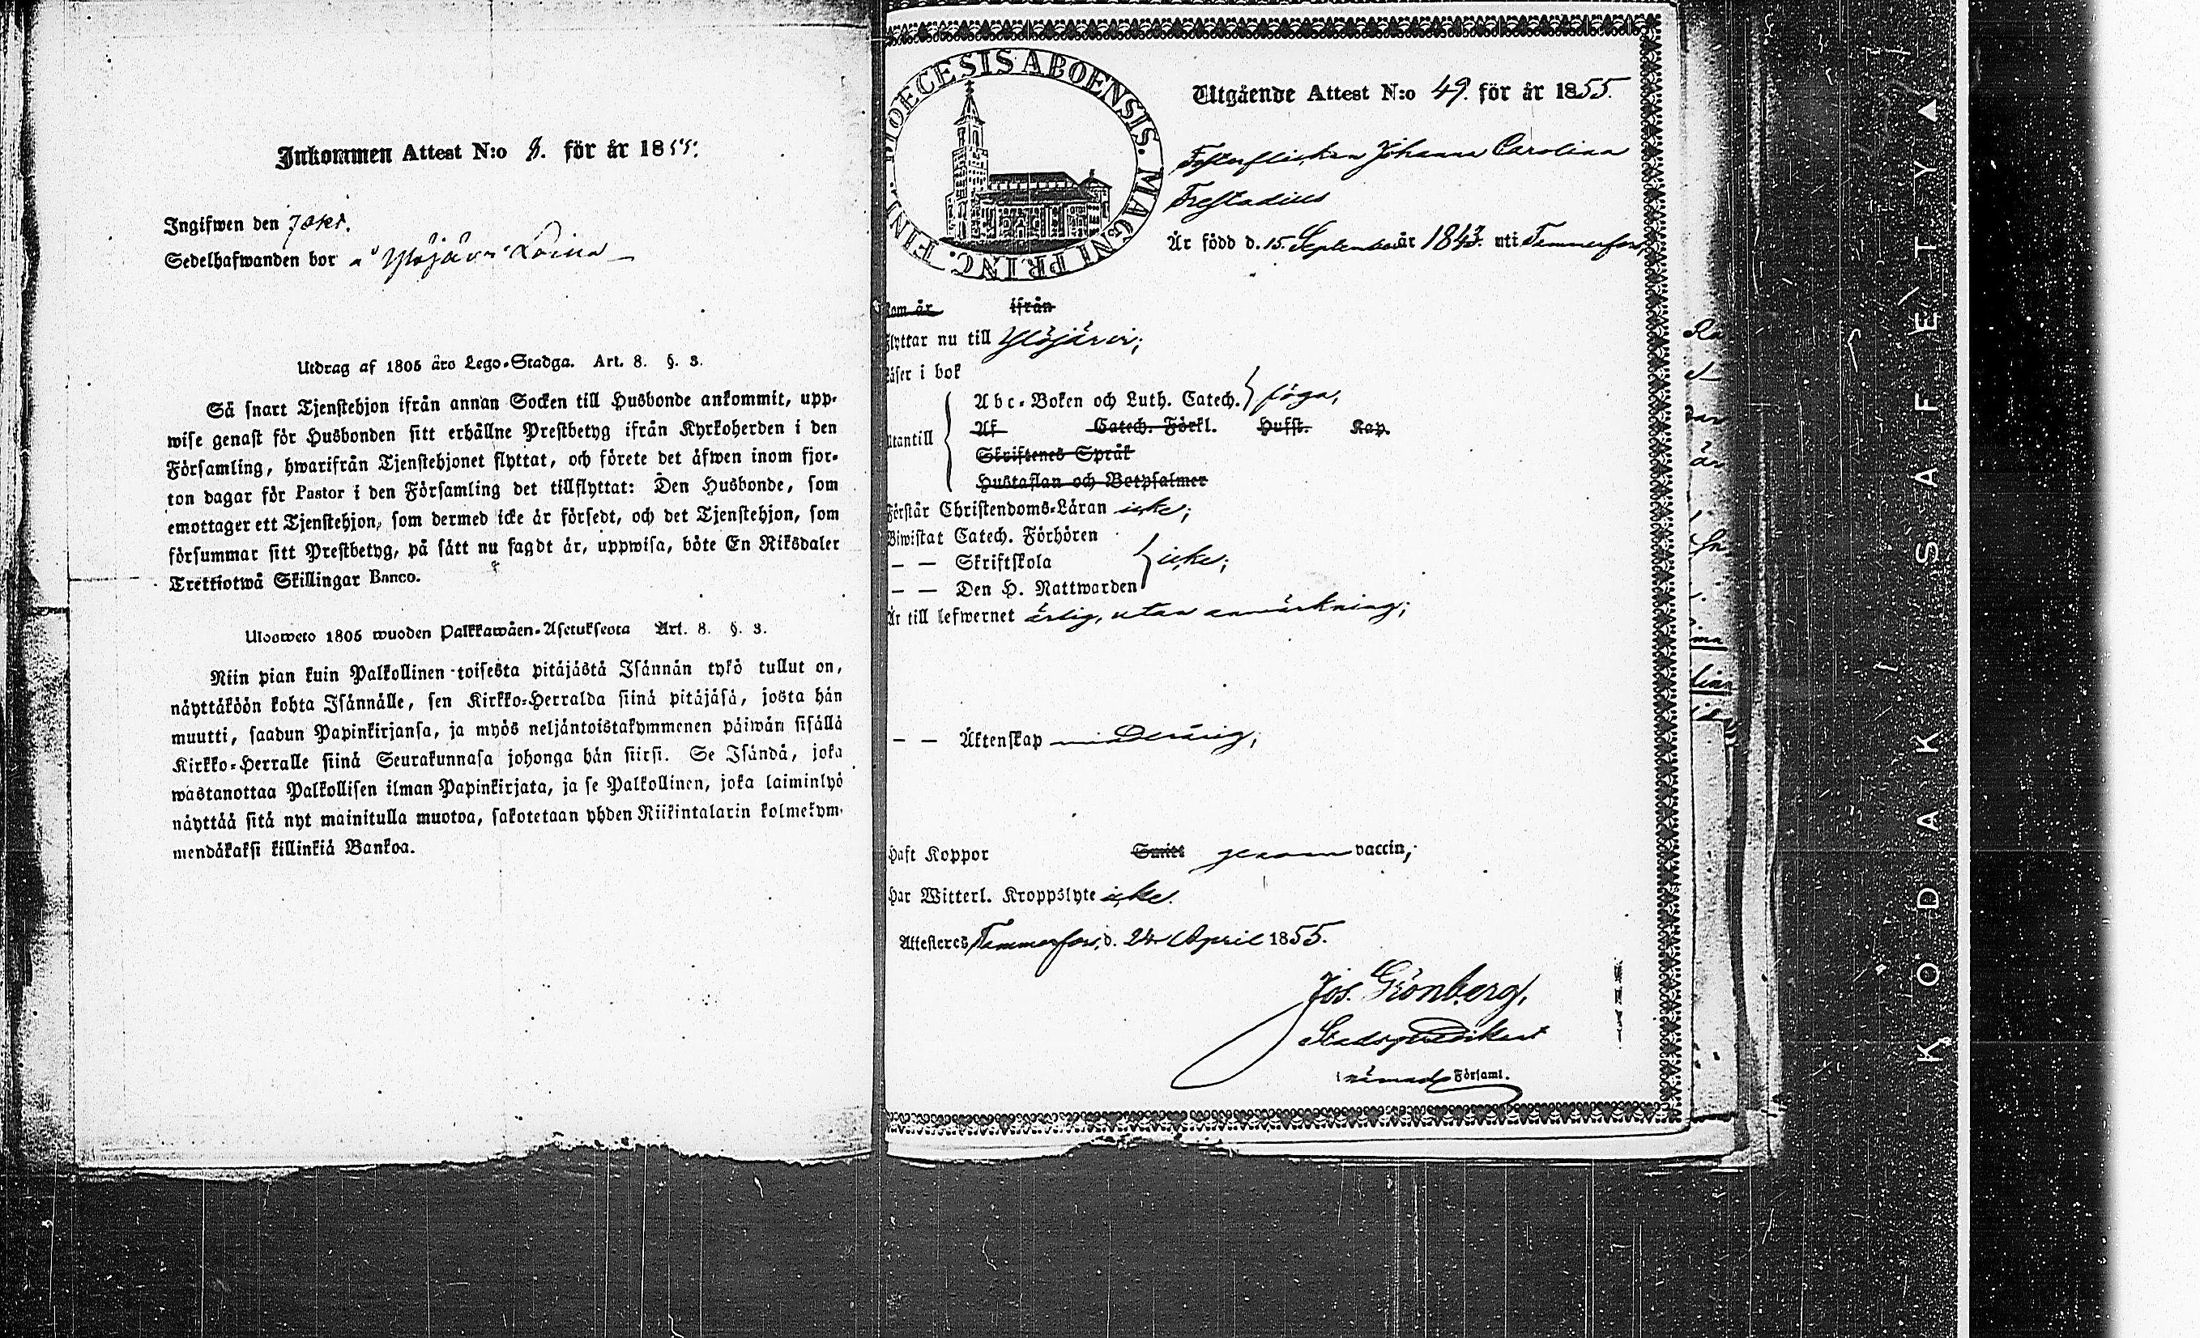 Inkommen Attest N:o 8. för år 1855.
Ingifwen den 7 Okt.
Sedelhafwanden bor å Ylöjärvi
Utdrag af 1805 års Lego-Stadga. Art. 8. §. 3.
Så snart Tjenstehjon ifrån annan Socken till Husbonde ankommit, upp-
wise genast för Husbonden sitt erhållne Prestbetyg ifrån Kyrkoherden i den
Församling, hwarifrån Tjenstehjonet flyttat, och förete det äfwen inom fjor-
ton dagar för Pastor i den Församling det tillflyttat: Den Husbonde, som
emottager ett Tjenstehjon, som dermed icke är försedt, och det Tjenstehjon, som
försummar sitt Prestbetyg, på sätt nu sagdt är, uppwisa, böte En Riksdaler
Trettiotwå Skillingar Banco.
Ulosweto 1805 wuoden Palkkawäen-Asetuksesta Art. 8. §. 3.
Niin pian kuin Palkollinen toisesta pitäjästä Isännän tykö tullut on,
näyttäköön kohta Isännälle, sen Kirkko-Herralda siinä pitäjäsä, josta hän
muutti, saadun Papinkirjansa, ja myös neljäntoistakymmenen päiwän sisällä
Kirkko-Herralle siinä Seurakunnasa johonga hän siirsi. Se Isändä, joka
wastanottaa Palkollisen ilman Papinkirjata, ja se Palkollinen, joka laiminlyö
näyttää sitä nyt mainitulla muotoa, sakotetaan yhden Riikintalarin kolmekym-
mendäkaksi killinkiä Bankoa.
DIOECESIS ABOENSIS. MAGNI PRINC. FINL.
Utgående Attest N:o 49. för år 1855.
Fosterflickan Johanna Carolina
Frestadius
Är född d. 15. September år 1843. uti Tammerfors,
kom år ifrån
flyttar nu till Ylöjärvi;
läser i bok
Abc-Boken och Luth. Catech. } föga;
utantill
Af Catech. Förkl. Husst. Kap.
Skriftenes Språk
Hustaflan och Botpsalmer
Förstår Christendoms-Läran icke;
Biwistat Catech. Förhören
— — Skriftskola } icke;
— — Den H. Nattwarden
Är till lefwernet ärlig, utan anmärkning;
— — Äktenskap minderårig;
Haft Koppor Smitt genom vaccin,
Har Witterl. Kroppslyte icke.
Attesteres Tammerfors, d. 24 April 1855.
Jos. Grönberg,
Stadspredikant
i nämnde Församl.
KODAK SAFETY ▲